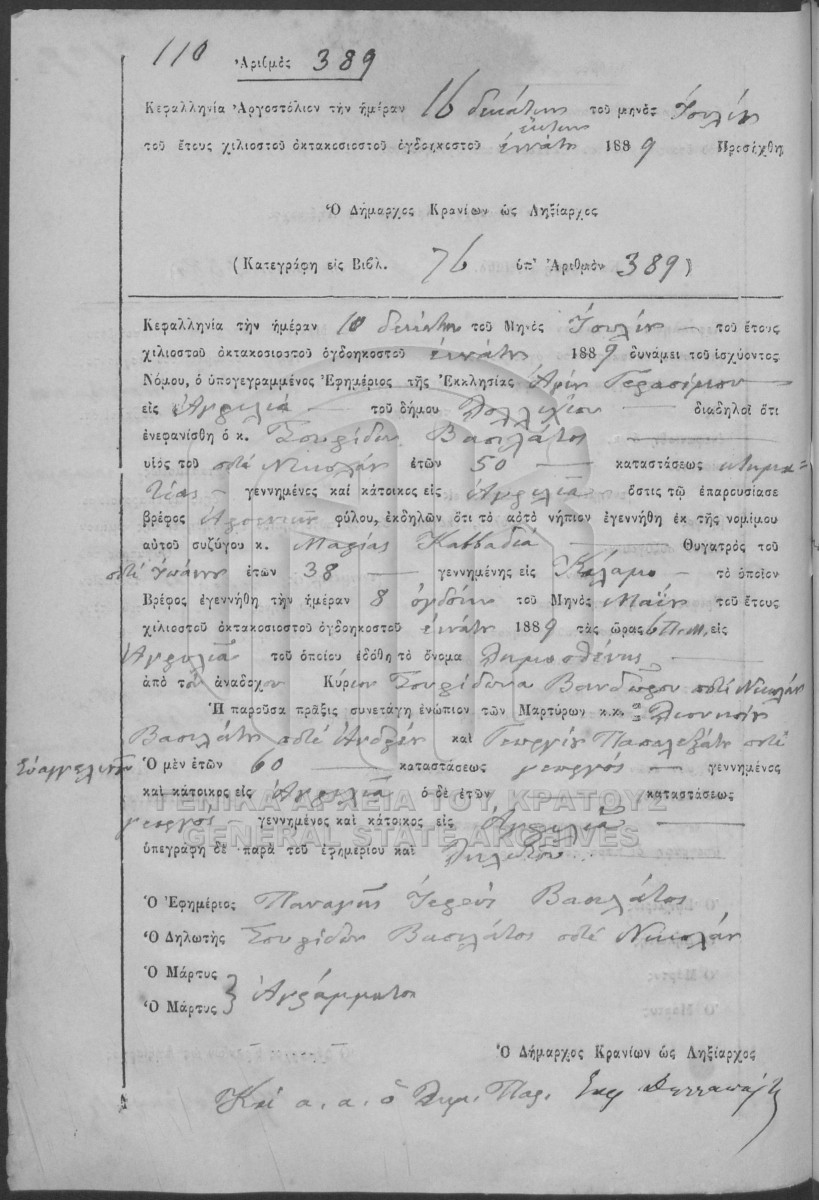 110 Ἀριθμὸς 389
Κεφαλληνία Ἀργοστόλιον τὴν ἡμέραν 16 δεκάτην τοῦ μηνὸς Ἰουλίου
ἕκτην
τοῦ ἔτους χιλιοστοῦ ὀκτακοσιοστοῦ ὀγδοηκοστοῦ ἐννάτου 1889 Προσήχθη
Ὁ Δήμαρχος Κρανίων ὡς Ληξίαρχος
(Κατεγράφη εἰς Βιβλ. 76 ὑπ' Ἀριθμὸν 389)
Κεφαλληνία τὴν ἡμέραν 10 δεκάτην τοῦ Μηνὸς Ἰουλίου τοῦ ἔτους
χιλιοστοῦ ὀκτακοσιοστοῦ ὀγδοηκοστοῦ ἐννάτου 1889 δυνάμει τοῦ ἰσχύοντος
Νόμου, ὁ ὑπογεγραμμένος Ἐφημέριος τῆς Ἐκκλησίας Ἁγίου Γερασίμου
εἰς τοῦ δήμου διαδηλοῖ ὅτι
ἐνεφανίσθη ὁ κ. Σπυρίδων Βασιλάτος
υἱὸς τοῦ ποτὲ Νικολάου ἐτῶν 50 καταστάσεως κτημα=
τίας γεννημένος καὶ κάτοικος εἰς ὅστις τῷ ἐπαρουσίασε
βρέφος Ἀρσενικοῦ φύλου, ἐκδηλῶν ὅτι τὸ αὐτὸ νήπιον ἐγεννήθη ἐκ τῆς νομίμου
αὐτοῦ συζύγου κ. Μαρίας Καββαδία Θυγατρὸς τοῦ
ποτὲ Ἰωάννου ἐτῶν 38 γεννημένης εἰς Κάλαμο τὸ ὁποῖον
Βρέφος ἐγεννήθη τὴν ἡμέραν 8 ὀγδόην τοῦ Μηνὸς Μαΐου τοῦ ἔτους
χιλιοστοῦ ὀκτακοσιοστοῦ ὀγδοηκοστοῦ ἐννάτου 1889 τὰς ὥρας 6 Π.Μ. εἰς
τοῦ ὁποίου ἐδόθη τὸ ὄνομα Δημοσθένης
ἀπὸ τὸν ἀνάδοχον Κύριον Σπυρίδωνα Βανδῶρον ποτὲ Νικολάου
Ἡ παροῦσα πρᾶξις συνετάγη ἐνώπιον τῶν Μαρτύρων κ.κ. Διονυσίου
Βασιλάτου ποτὲ Ἀνδρέου καὶ Γεωργίου ποτὲ
Εὐαγγελινοῦ Ὁ μὲν ἐτῶν 60 καταστάσεως γεωργὸς γεννημένος
καὶ κάτοικος εἰς ὁ δὲ ἐτῶν καταστάσεως
ΓΕΝΙΚΑ ΑΡΧΕΙΑ ΤΟΥ ΚΡΑΤΟΥΣ
γεωργὸς γεννημένος καὶ κάτοικος εἰς
GENERAL STATE ARCHIVES
ὑπεγράφη δὲ παρὰ τοῦ ἐφημερίου καὶ Δηλωτοῦ
Ὁ Ἐφημέριος Παναγῆς Ἱερεὺς Βασιλάτος
Ὁ Δηλωτὴς Σπυρίδων Βασιλάτος ποτὲ Νικολάου
Ὁ Μάρτυς
Ὁ Μάρτυς } Ἀγράμματοι
Ὁ Δήμαρχος Κρανίων ὡς Ληξίαρχος
Καὶ α. α. ὁ Δημ. Παρ.